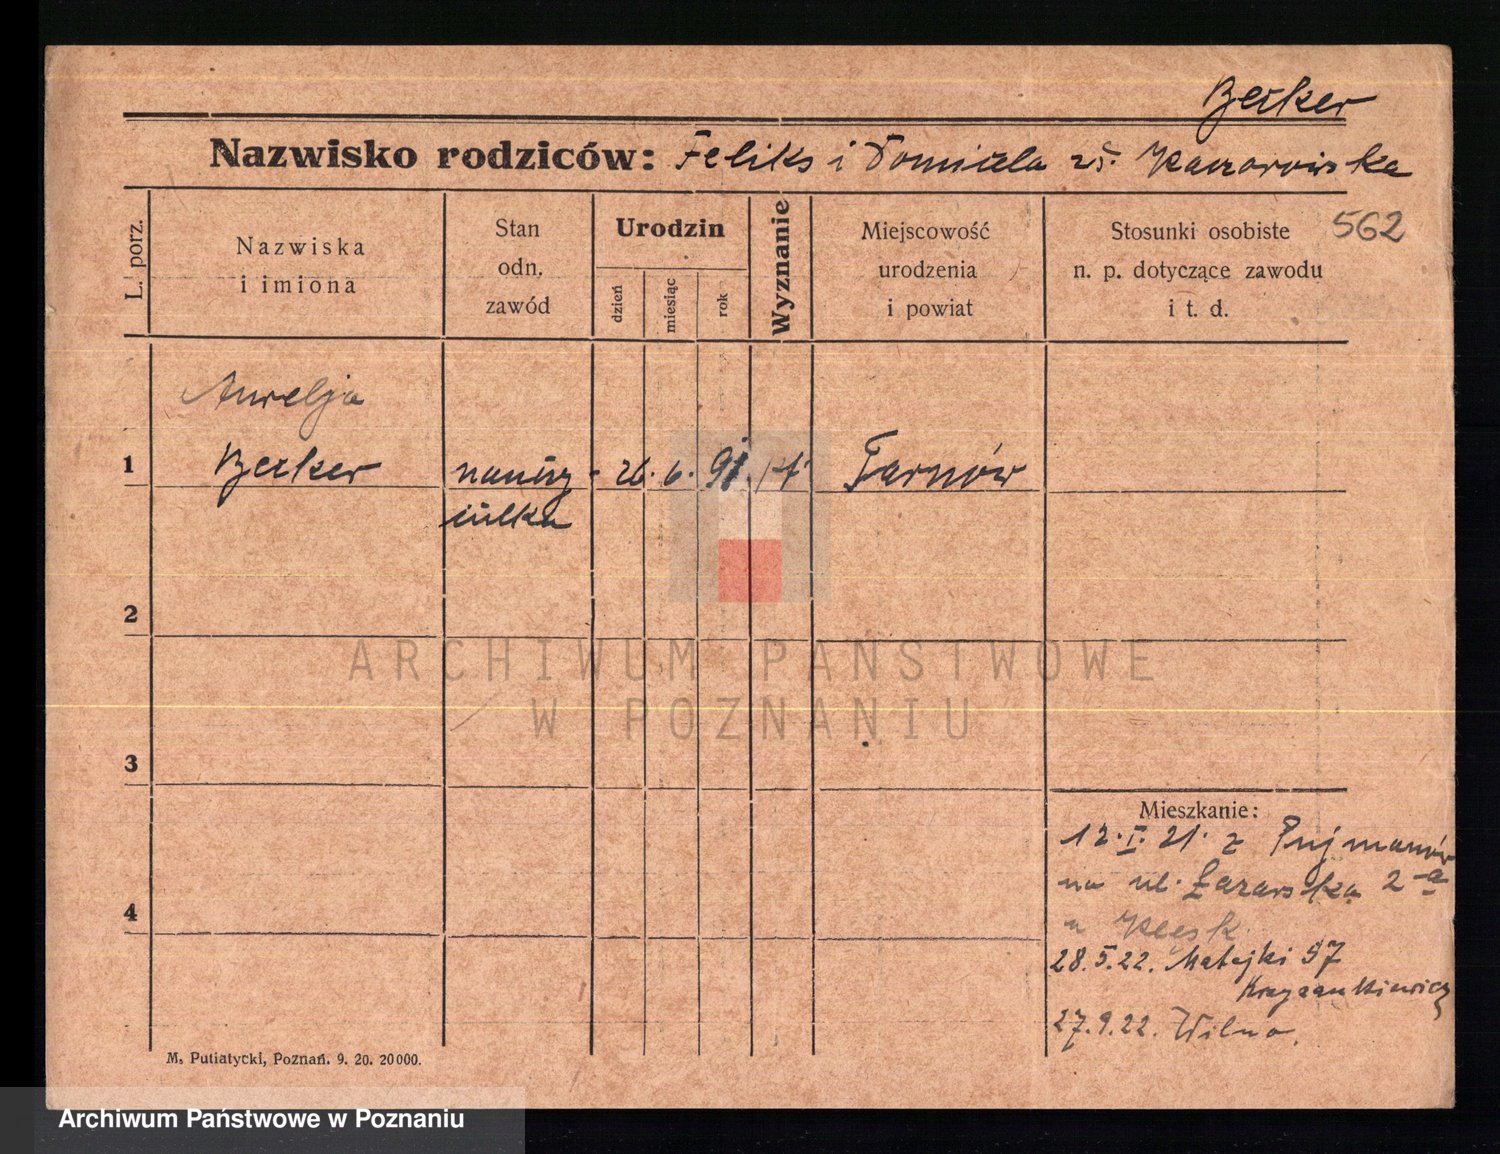 Becker
Nazwisko rodziców: Feliks i Domicela zd. Kaczorowska
562
L. porz.
Nazwiska
i imiona
Stan
odn.
zawód
Urodzin
dzień
miesiąc
rok
Wyznanie
Miejscowość
urodzenia
i powiat
Stosunki osobiste
n. p. dotyczące zawodu
i t. d.
Aurelja
1 Becker naucz- 26. 6. 91. Tarnów
cielka
2
3
4
Mieszkanie:
12.I.21. z
na ul. Łazarska 2-a
u
28.5.22. Matejki 57
27.9.22. Wilno.
M. Putiatycki, Poznań. 9. 20. 20000.
ARCHIWUM PAŃSTWOWE
W POZNANIU
Archiwum Państwowe w Poznaniu